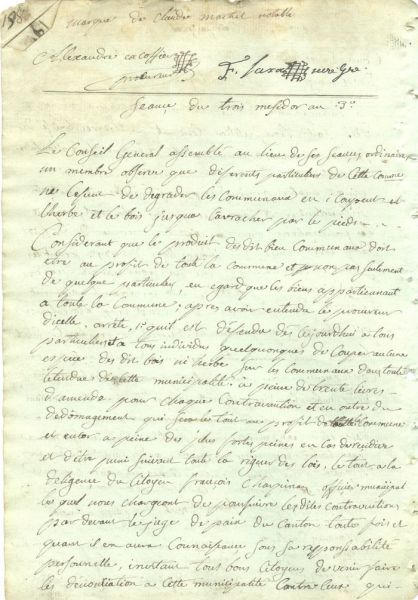 198
marque de claude martel notable
Alexandre cacossier
procureur
F. Secre Gre
Seance du trois mesidor an 3e
Le Conseil General assemblé au lieu de ses Seances ordinaire
un membre observe que diferents particuliers de Cette Comune
ne Cessent de degrader les Communaux en i Coupent et
lherbe et le bois jusqua larracher par le pieds
Considerant que le produit des dit bien Communaux doit
etre au profit de toute la Commune et non pas seulement
de quelque particulier, en egard que les biens appartiennent
a toute la Commune, apres avoir entendu le procureur
dicelle, arrete, 1° quil est defendu des Ce jourdhui a tous
particuliers et a tous individus quelquonques de Couper aucune
espece des dit bois ni herbe, sur les Communaux dans toute
letendue de Cette municipalité, a peine de trente livres
damende pour chaque Contravention et en outre du
dedomagement qui sera le tout au profit de Commune
et autre a peine des plus fortes peines en Cas de recidive
et detre puni suivant toute la rigueur des lois, le tout a la
diligence du Citoyen francois Chapuina officier municipal
lequel nous chargeons de poursuivre les dites Contraventions
par devant le juge de paix du Canton toute fois et
quant il en aura Connaissance sous sa responsabilité
personnelle, invitant tous bons Citoyens de venir faire
les denontiation a Cette municipalité Contre Ceux qui